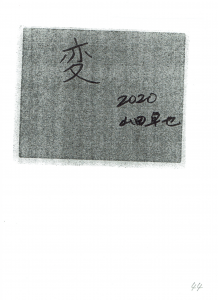 変
2020
山田卓也
44